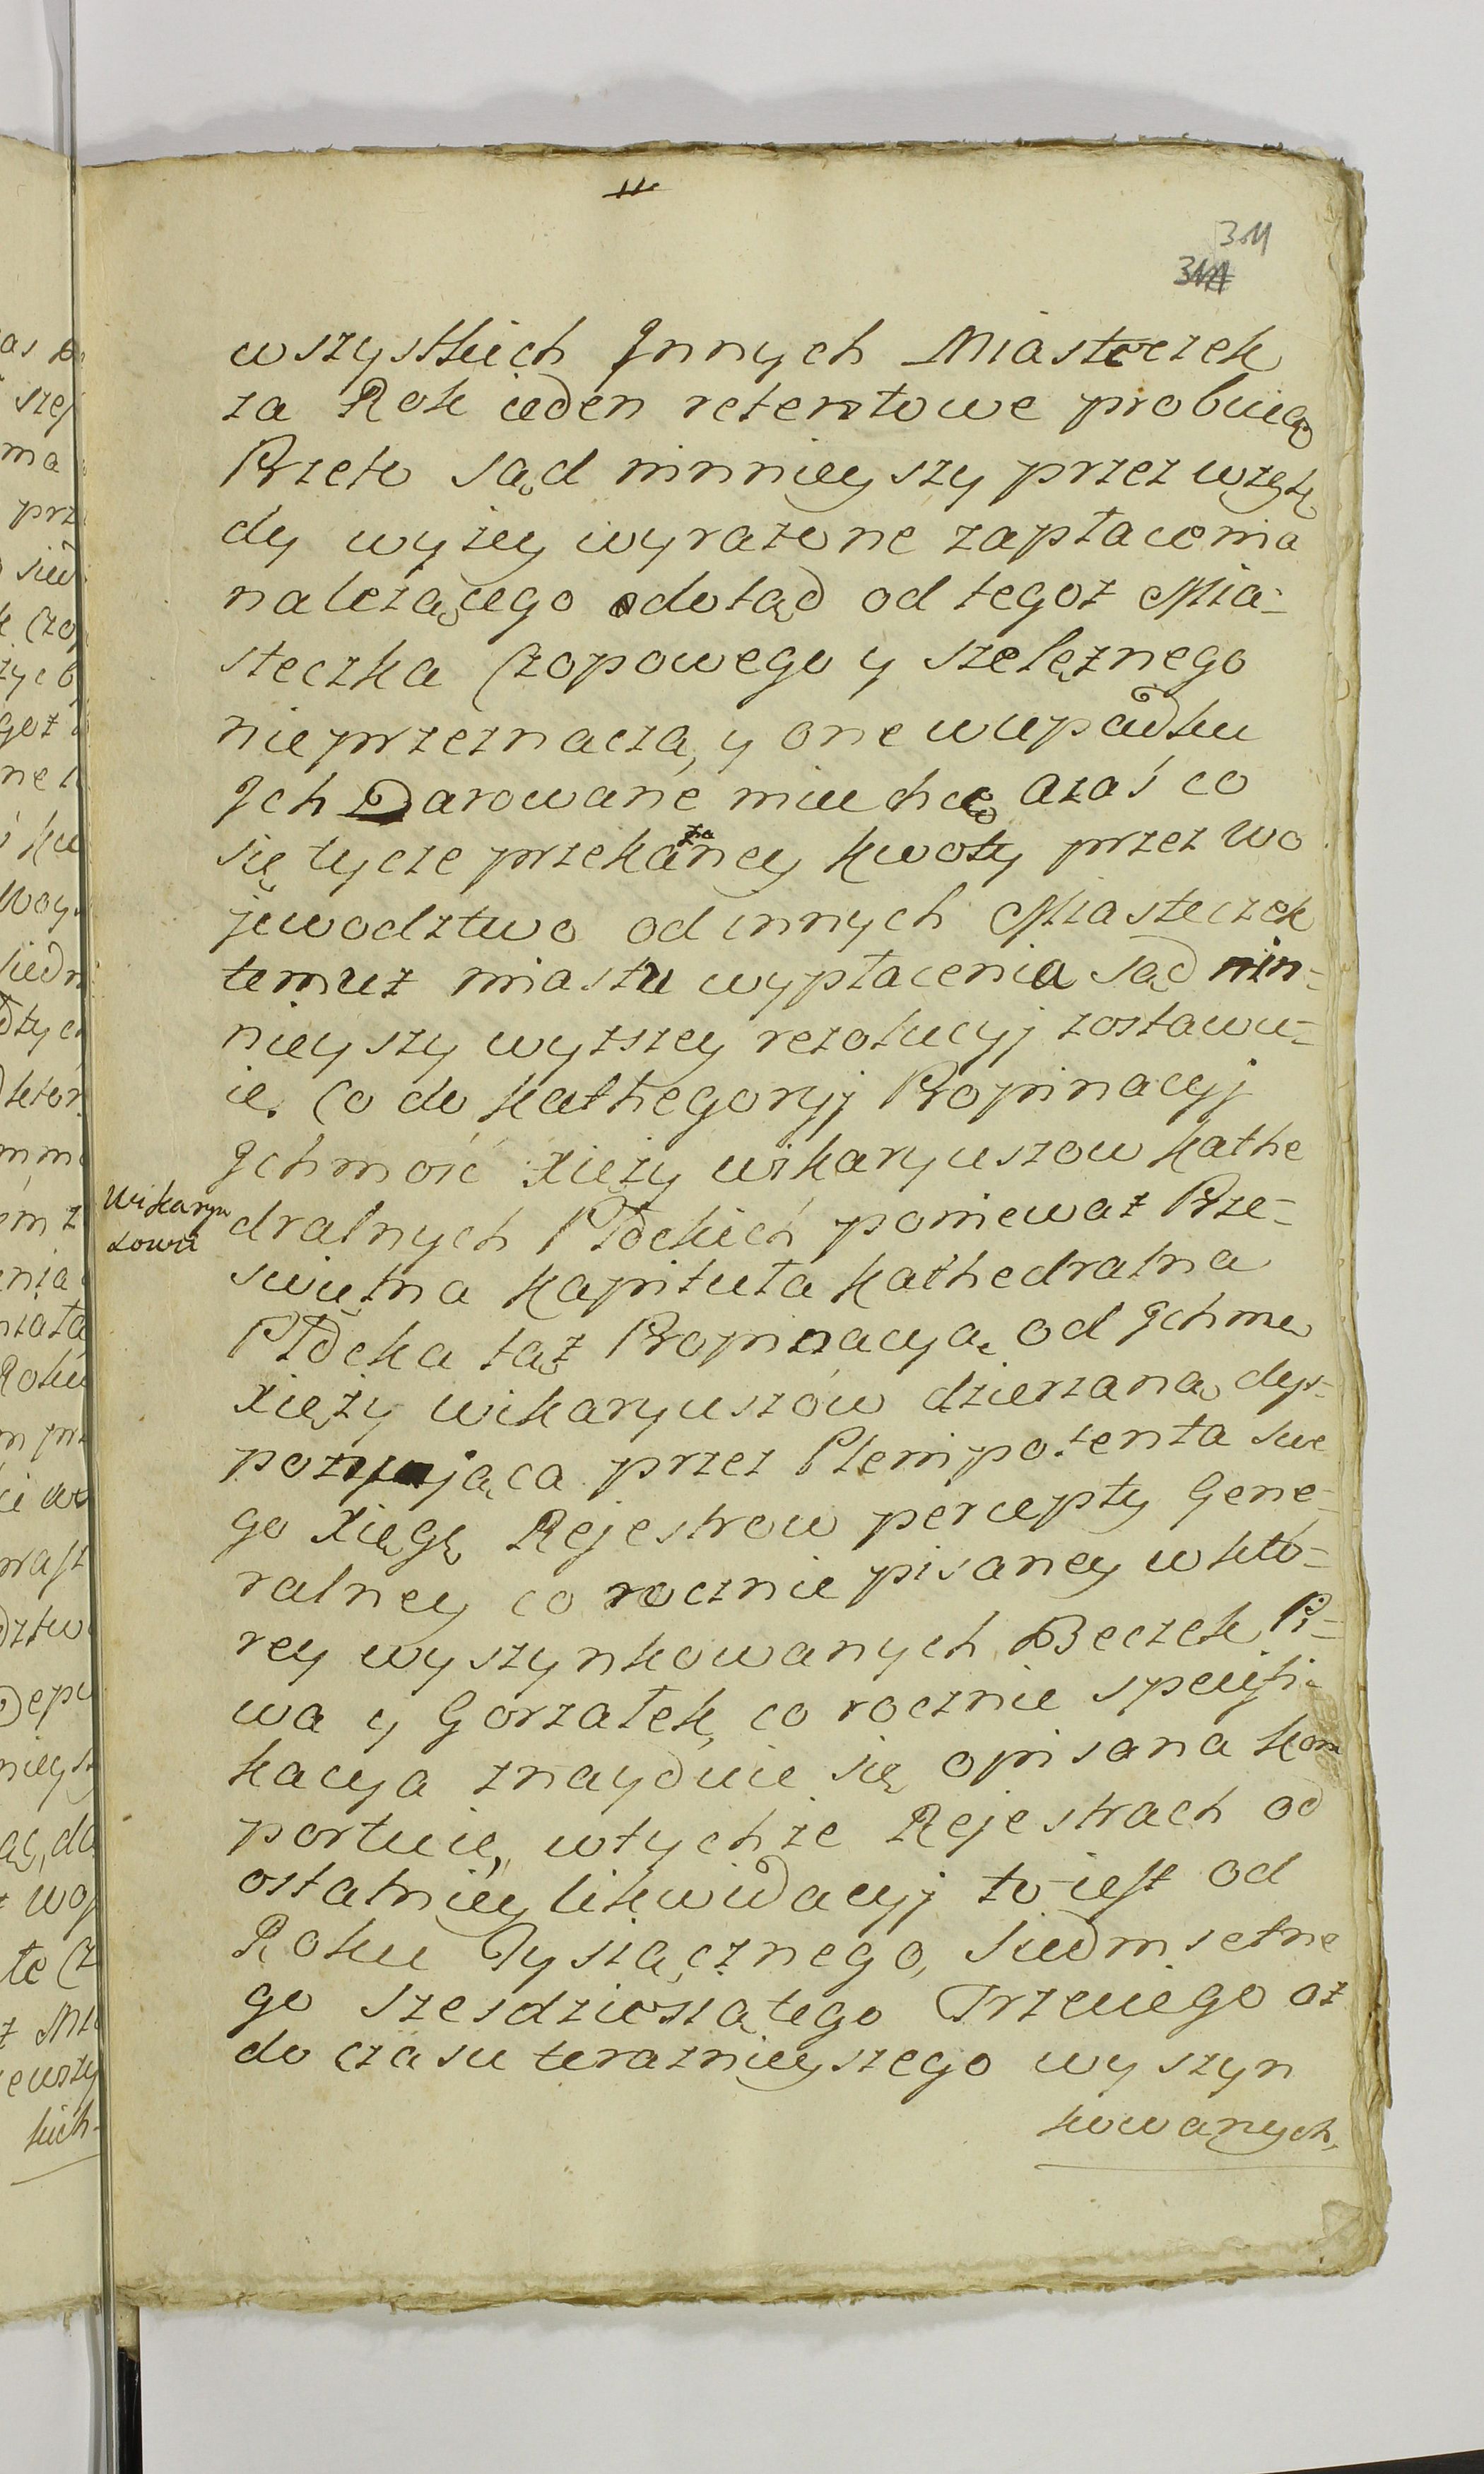 311
wszystkich Jnnych Miasteczek
za Rok ieden retentowe probuią
Przeto Sąd ninnieyszy przez wzglę
dy wyżey wyrażone zapłacenia
należącego dotąd od tegoż Mia-
steczka Czopowego y szelężnego
nieprzeznacza, y one wupadku
Jch Darowane mieć chce azaś co
się tycze przekazaney kwoty przez Wo
jewodztwo od innych Miasteczek
temuż miastu wypłacenia Sąd nin-
nieyszy wyższey rezolucyj zostawu-
ie. Co do kathegoryj Propinacyj
Jchmość Xięży wikaryuszow kathe
dralnych Płockich ponieważ Prze-
swietna kapituła kathedralna
Płocka taż Propinacya od Jchmć
Xięży wikaryuszów dzierżaną dys-
ponująca przez Plenipotenta swe
go Xięgę Rejestrow percepty Gene-
ralney co rocznie pisaney wktó-
rey wyszynkowanych Beczek Pi-
wa y Gorzałek, co rocznie specifi-
kacya znayduie się opisana kom
portuie, wtychże Rejestrach od
ostatniey likwidacyj to iest od
Roku Tysiącznego, Siedmsetne
go Szesdziesiątego Trzeciego aż
do czasu teraznieyszego wyszyn
kowanych,
Wikaryu
szowie